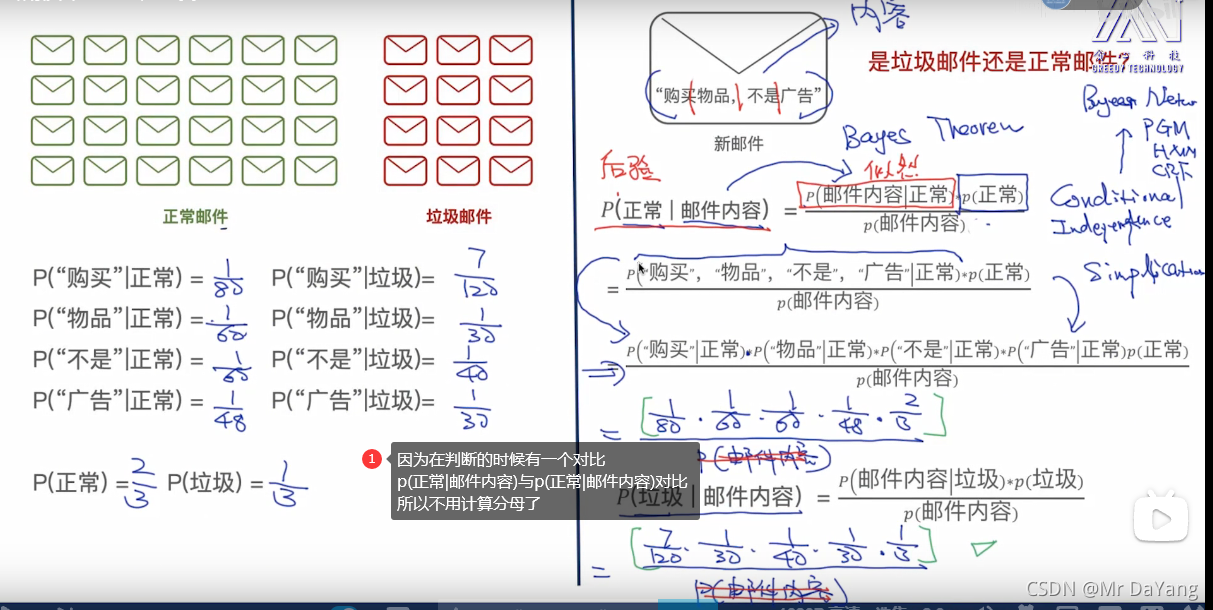 正常邮件
垃圾邮件
P(“购买”|正常) = 1/80 P(“购买”|垃圾)= 7/120
P(“物品”|正常) = 1/60 P(“物品”|垃圾)= 1/30
P(“不是”|正常) = 1/60 P(“不是”|垃圾)= 1/40
P(“广告”|正常) = 1/48 P(“广告”|垃圾)= 1/30
P(正常) = 2/3 P(垃圾) = 1/3
1
因为在判断的时候有一个对比
p(正常|邮件内容)与p(正常|邮件内容)对比
所以不用计算分母了
内容
“购买物品，不是广告”
新邮件
是垃圾邮件还是正常邮件?
GREEDY TECHNOLOGY
Bayes Theorem
PGM
HMM
CRF
Conditional
Independence
后验
似然
P(正常 | 邮件内容) = P(邮件内容|正常)*p(正常) / p(邮件内容)
= P(“购买”，“物品”，“不是”，“广告”|正常)*p(正常) / p(邮件内容)
Simplication
P(“购买”|正常)*P(“物品”|正常)*P(“不是”|正常)*P(“广告”|正常)p(正常) / p(邮件内容)
= [1/80 · 1/60 · 1/60 · 1/48 · 2/3] / p(邮件内容)
P(垃圾 | 邮件内容) = P(邮件内容|垃圾)*p(垃圾) / p(邮件内容)
= [7/120 · 1/30 · 1/40 · 1/30 · 1/3] / p(邮件内容)
CSDN @Mr DaYang